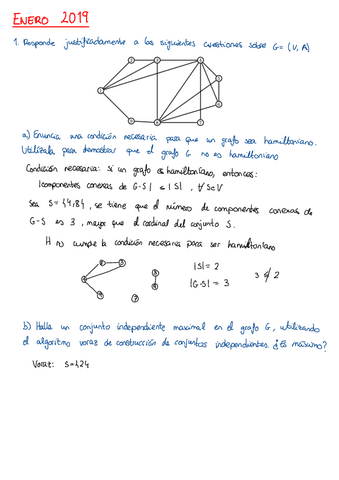 ENERO 2019
1. Responde justificadamente a las siguientes cuestiones sobre G=(V,A)
a) Enuncia una condición necesaria para que un grafo sea hamiltoniano.
Utilízala para demostrar que el grafo G no es hamiltoniano
Condición necesaria: Si un grafo es hamiltoniano, entonces:
|componentes conexas de G-S| ≤ |S|, ∀S⊂V
Sea S={4,8}, se tiene que el número de componentes conexas de
G-S es 3, mayor que el cardinal del conjunto S.
H no cumple la condición necesaria para ser hamiltoniano
|S|=2
|G-S|= 3
3 ≰ 2
b) Halla un conjunto independiente maximal en el grafo G, utilizando
el algoritmo voraz de construcción de conjuntos independientes. ¿Es máximo?
Voraz: